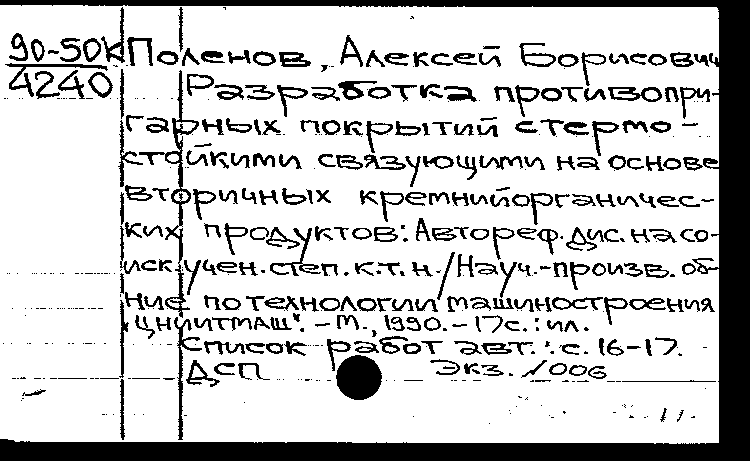 90-50К Поленов, Алексей Борисович
4240 Разработка противопри-
гарных покрытий с термо-
стойкими связующими на основе
вторичных кремнийорганичес-
ких продуктов: Автореф. дис. на со-
иск. учен. степ. к.т.н. / Науч.-произв. об-
ние по технологии машиностроения
"ЦНИИТМАШ". - М., 1990. - 17с.: ил.
Список работ авт.: с. 16-17.
ДСП Экз. 1006